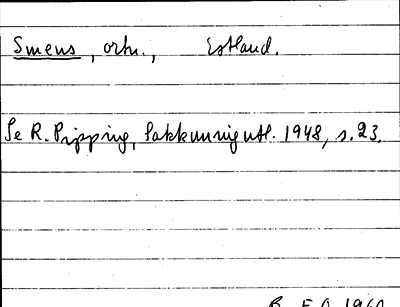 Smens, ortn., Estland.
Se R. Pipping, Sakkunnigutl. 1948, s. 23.